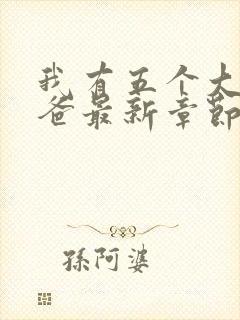 我有五个大
爸最新章節
孫阿婆